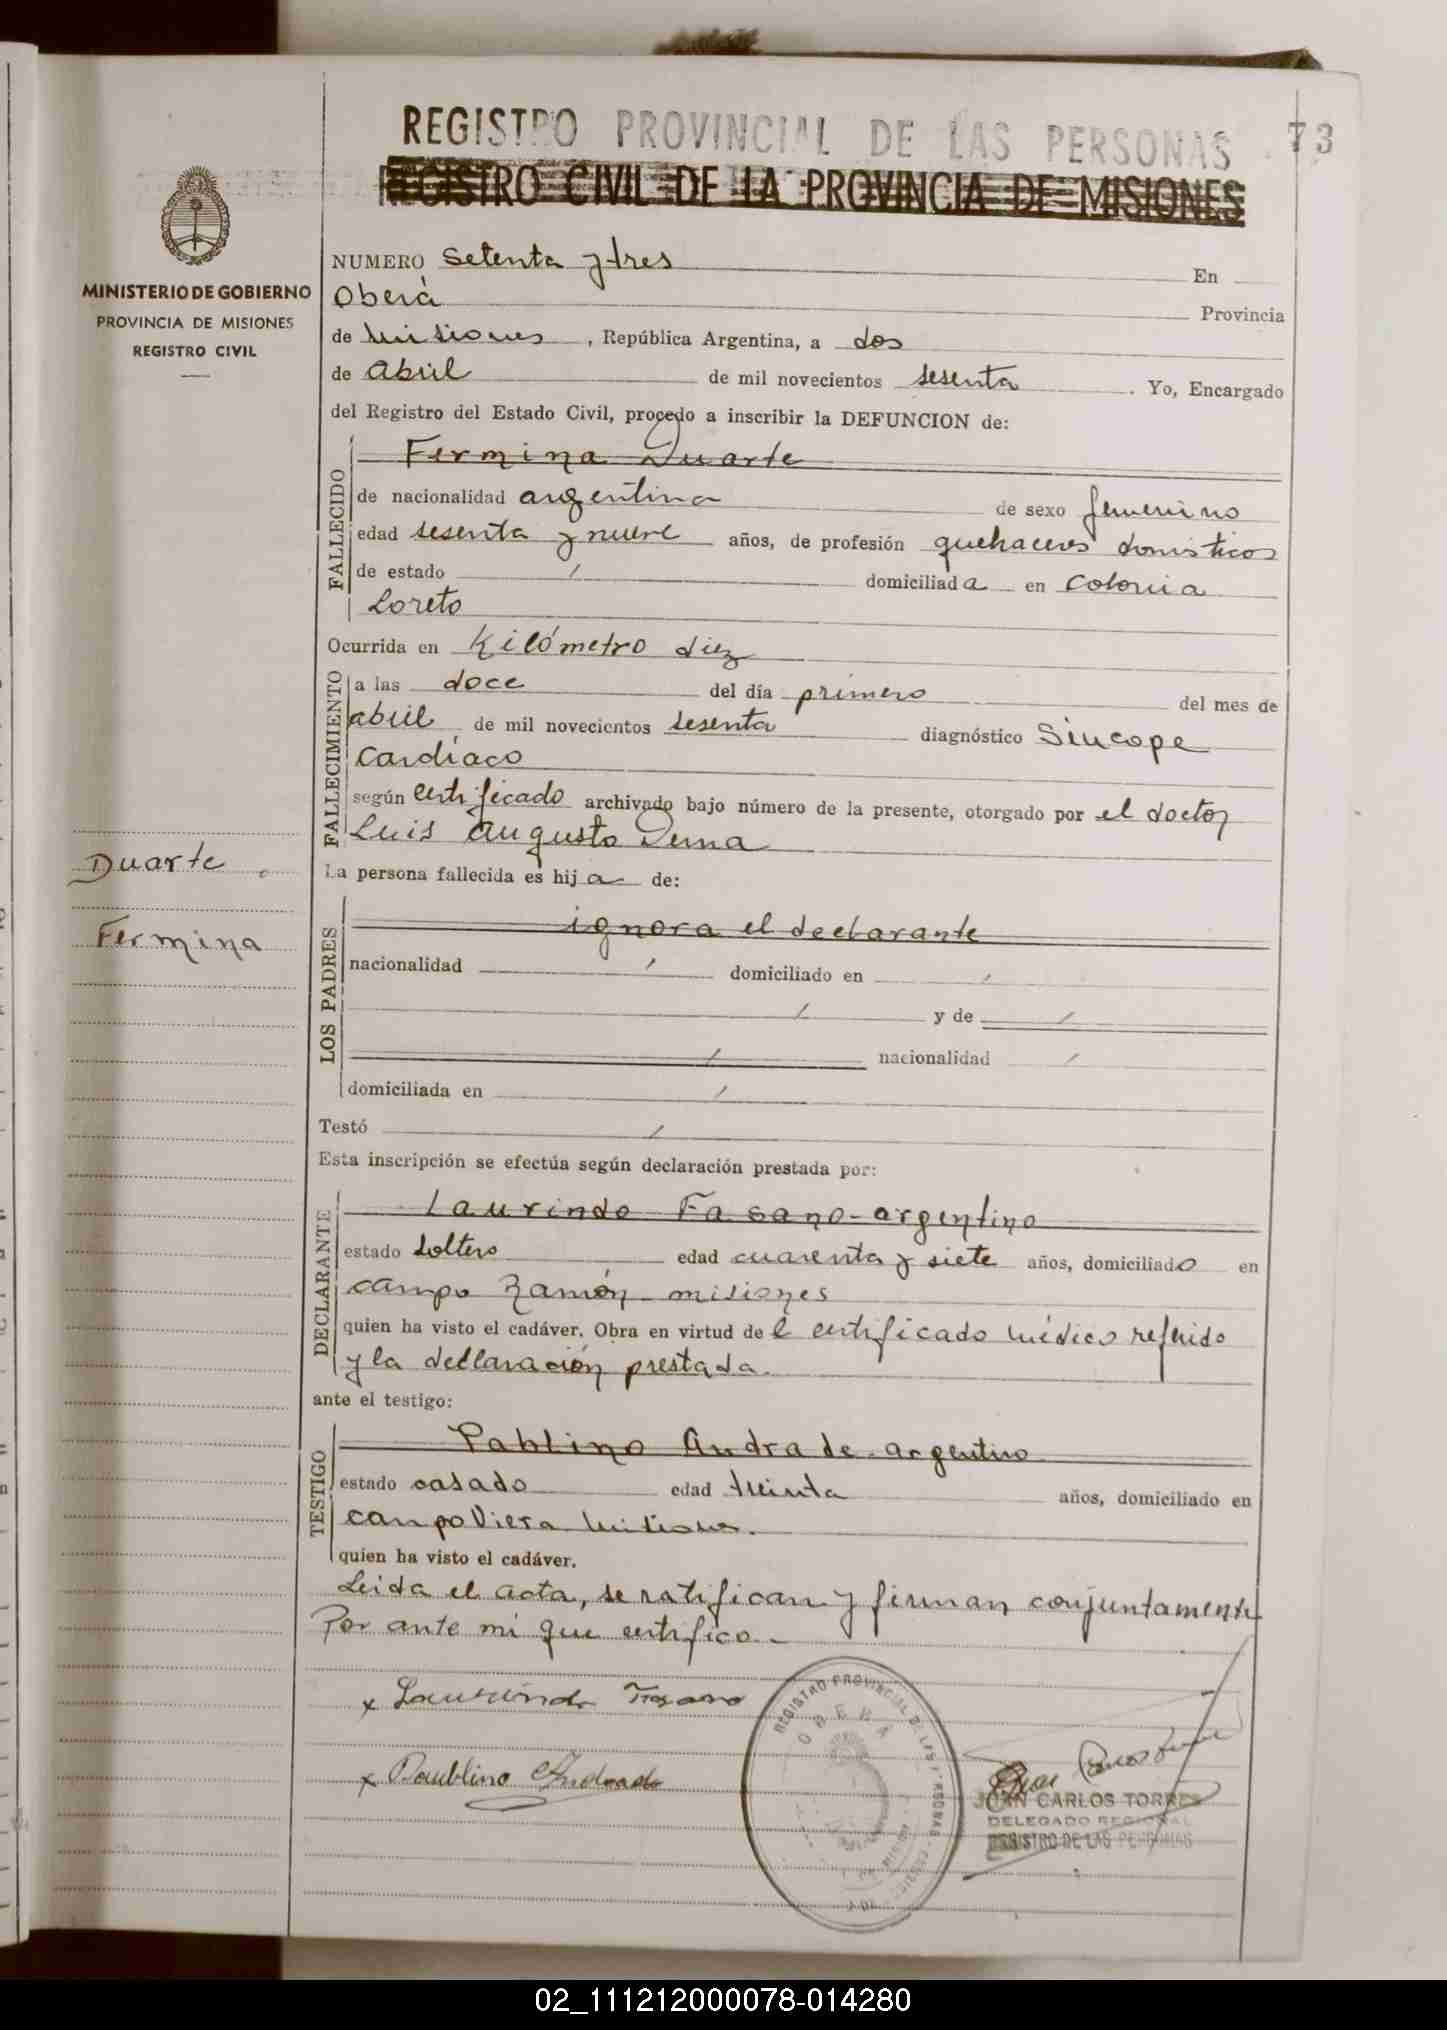 REGISTRO PROVINCIAL DE LAS PERSONAS
73
REGISTRO CIVIL DE LA PROVINCIA DE MISIONES
MINISTERIO DE GOBIERNO
PROVINCIA DE MISIONES
REGISTRO CIVIL
NUMERO setenta y tres En
Oberá Provincia
de Misiones, República Argentina, a dos
de abril de mil novecientos sesenta. Yo, Encargado
del Registro del Estado Civil, procedo a inscribir la DEFUNCION de:
FALLECIDO
Fermina Duarte
de nacionalidad argentina de sexo femenino
edad sesenta y nueve años, de profesión quehaceres domésticos
de estado / domiciliada en Colonia
Loreto
Ocurrida en Kilómetro diez
FALLECIMIENTO
a las doce del día primero del mes de
abril de mil novecientos sesenta diagnóstico Sincope
Cardíaco
según certificado archivado bajo número de la presente, otorgado por el doctor
Luis Augusto
La persona fallecida es hija de:
Duarte
Fermina
LOS PADRES
ignora el declarante
nacionalidad / domiciliado en /
/ y de /
/ nacionalidad /
domiciliada en /
Testó /
Esta inscripción se efectúa según declaración prestada por:
DECLARANTE
Laurindo Fasano-argentino
estado Soltero edad cuarenta y siete años, domiciliado en
campo Ramón misiones
quien ha visto el cadáver. Obra en virtud del certificado médico referido
y la declaración prestada.
ante el testigo:
TESTIGO
Pablino Andrade-argentino
estado casado edad treinta años, domiciliado en
campo Viera Misiones.
quien ha visto el cadáver.
Leida el acta, se ratifican y firman conjuntamente
Por ante mi que certifico.-
x Laurindo Fasano
x Paublino Andrade
REGISTRO PROVINCIAL DE LAS PERSONAS
OBERA
JUAN CARLOS TORRES
DELEGADO REGIONAL
REGISTRO DE LAS PERSONAS
02_111212000078-014280